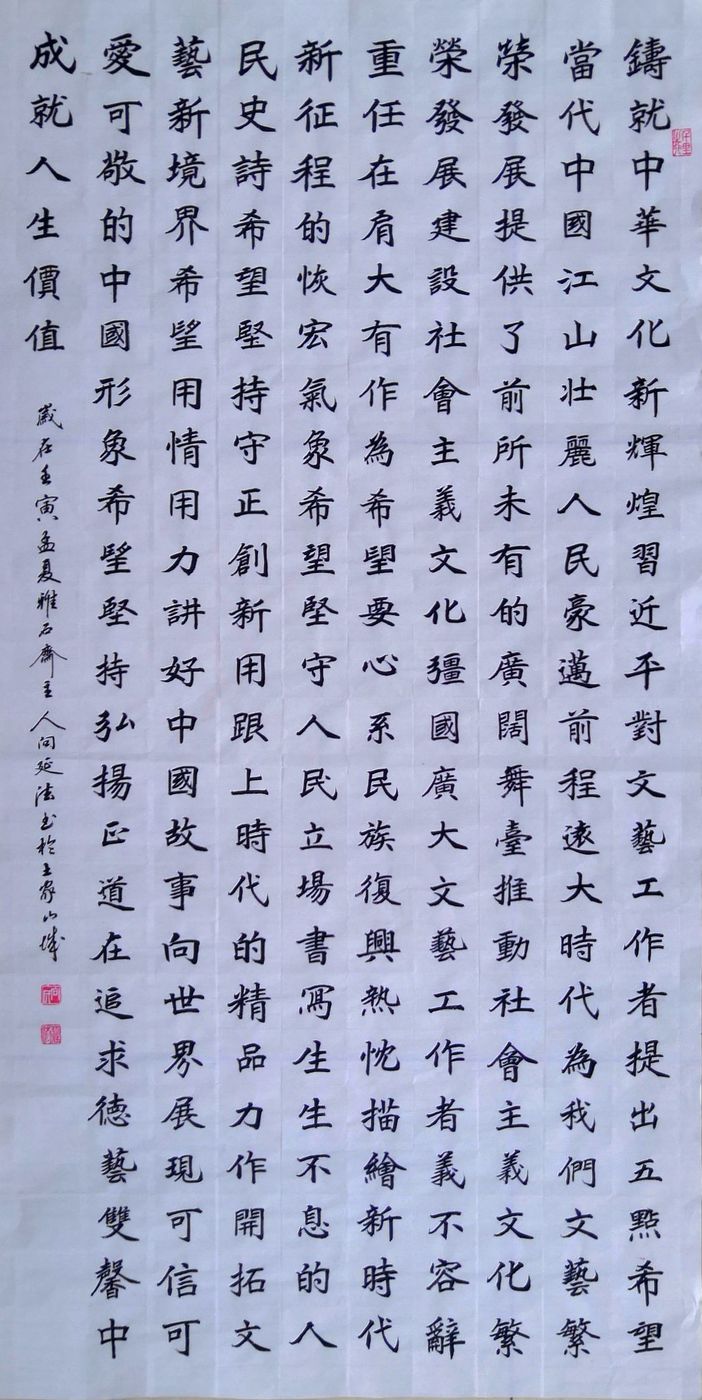 鑄就中華文化新輝煌習近平對文藝工作者提出五點希望
當代中國江山壯麗人民豪邁前程遠大時代為我們文藝繁
榮發展提供了前所未有的廣闊舞臺推動社會主義文化繁
榮發展建設社會主義文化彊國廣大文藝工作者義不容辭
重任在肩大有作為希望要心系民族復興熱忱描繪新時代
新征程的恢宏氣象希望堅守人民立場書寫生生不息的人
民史詩希望堅持守正創新用跟上時代的精品力作開拓文
藝新境界希望用情用力講好中國故事向世界展現可信可
愛可敬的中國形象希望堅持弘揚正道在追求德藝雙馨中
成就人生價值
歲在壬寅孟夏雅石齋主人向延法書於土家山城